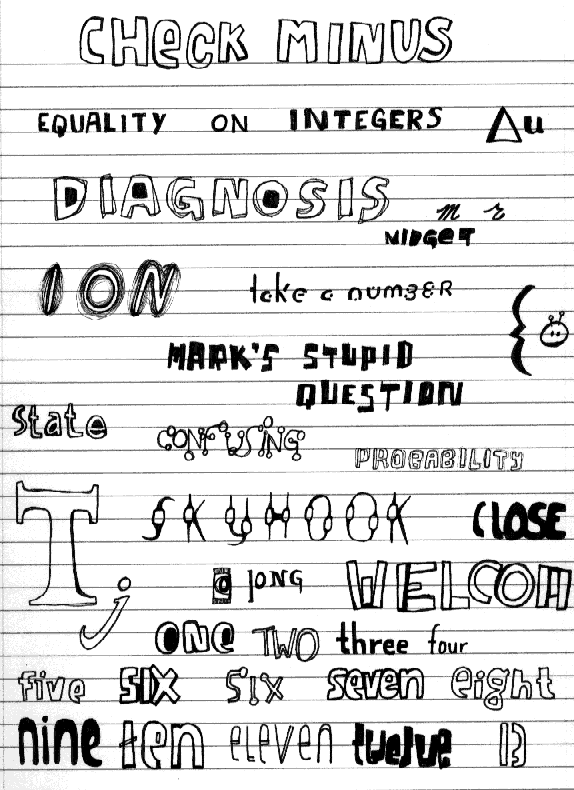 CHeCK MINUS
EQUALITY ON INTEGERS Δu
DIAGNOSIS m r
NIDGET
ION take a numBER
MARK'S STUPID
QUESTION
State CONFUSING
PROBABILITY
T SKYHOOK CLOSE
a lONG WELCOM
j
ONe TWO three four
five SIX SIX seven eight
nine ten eleven twelve 13